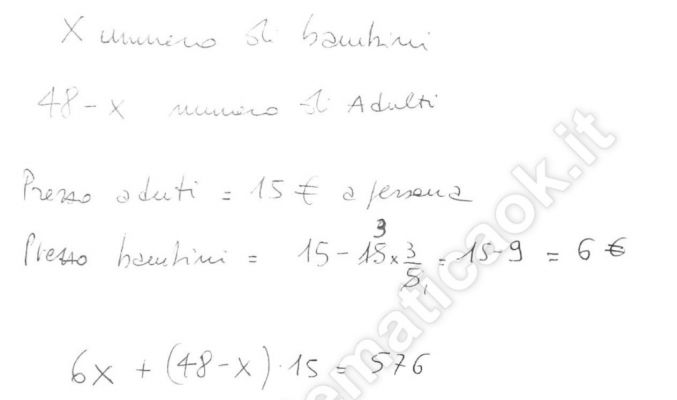 X numero di bambini
48-x numero di Adulti
Prezzo aduti = 15 € a persona
Prezzo bambini = 15 - 15 3 x 3/5 1 = 15-9 = 6 €
6x + (48-x)·15 = 576
ematicaok.it